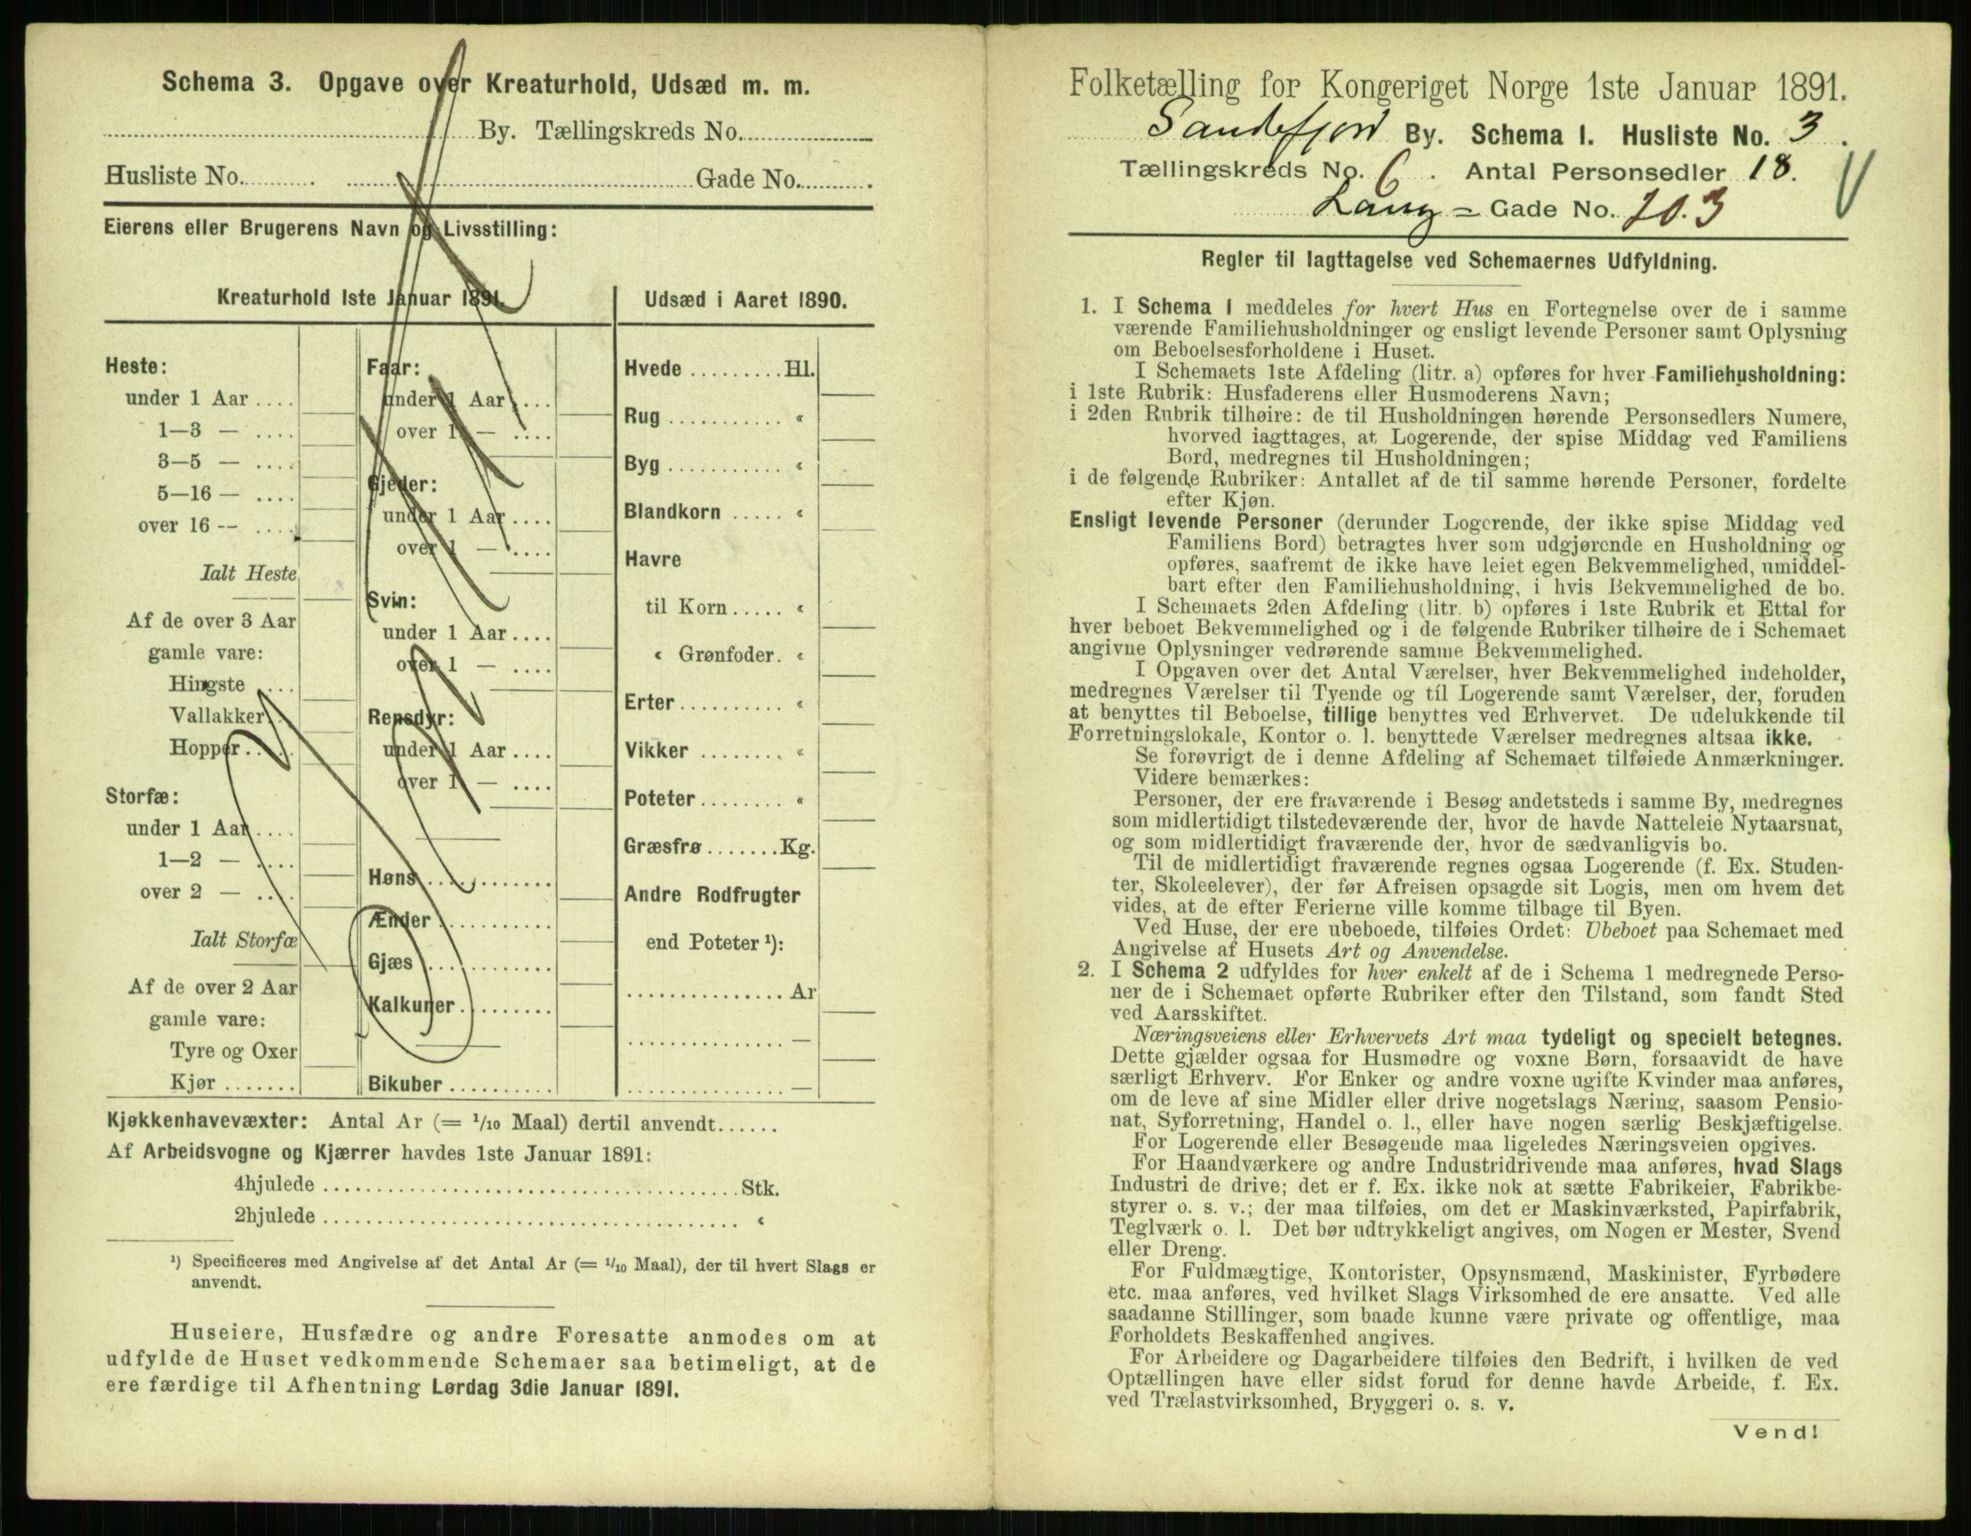 Schema 3. Opgave over Kreaturhold, Udsæd m. m.
By. Tællingskreds No.
Husliste No. Gade No.
Eierens eller Brugerens Navn og Livsstilling:
Kreaturhold 1ste Januar 1891.
Heste:
under 1 Aar
1—3 —
3—5 —
5—16 —
over 16 —
Ialt Heste
Af de over 3 Aar
gamle vare:
Hingste
Vallakker
Hopper
Storfæ:
under 1 Aar
1—2 —
over 2 —
Ialt Storfæ
Af de over 2 Aar
gamle vare:
Tyre og Oxer
Kjør
Faar:
under 1 Aar
over 1 —
Gjeder:
under 1 Aar
over 1 —
Svin:
under 1 Aar
over 1 —
Rensdyr:
under 1 Aar
over 1 —
Høns
Ænder
Gjæs
Kalkuner
Bikuber
Udsæd i Aaret 1890.
Hvede Hl.
Rug «
Byg «
Blandkorn «
Havre
til Korn «
« Grønfoder «
Erter «
Vikker «
Poteter «
Græsfrø Kg.
Andre Rodfrugter
end Poteter ¹):
Ar
—
—
Kjøkkenhavevæxter: Antal Ar (= 1/10 Maal) dertil anvendt
Af Arbeidsvogne og Kjærrer havdes 1ste Januar 1891:
4hjulede Stk.
2hjulede «
¹) Specificeres med Angivelse af det Antal Ar (= 1/10 Maal), der til hvert Slags er
anvendt.
Huseiere, Husfædre og andre Foresatte anmodes om at
udfylde de Huset vedkommende Schemaer saa betimeligt, at de
ere færdige til Afhentning Lørdag 3die Januar 1891.
Folketælling for Kongeriget Norge 1ste Januar 1891.
Sandefjord By. Schema 1. Husliste No. 3.
Tællingskreds No. 6. Antal Personsedler 18.
Lang= Gade No. 20.3
Regler til Iagttagelse ved Schemaernes Udfyldning.
1. I Schema 1 meddeles for hvert Hus en Fortegnelse over de i samme
værende Familiehusholdninger og ensligt levende Personer samt Oplysning
om Beboelsesforholdene i Huset.
I Schemaets 1ste Afdeling (litr. a) opføres for hver Familiehusholdning:
i 1ste Rubrik: Husfaderens eller Husmoderens Navn;
i 2den Rubrik tilhøire: de til Husholdningen hørende Personsedlers Numere,
hvorved iagttages, at Logerende, der spise Middag ved Familiens
Bord, medregnes til Husholdningen;
i de følgende Rubriker: Antallet af de til samme hørende Personer, fordelte
efter Kjøn.
Ensligt levende Personer (derunder Logerende, der ikke spise Middag ved
Familiens Bord) betragtes hver som udgjørende en Husholdning og
opføres, saafremt de ikke have leiet egen Bekvemmelighed, umiddel-
bart efter den Familiehusholdning, i hvis Bekvemmelighed de bo.
I Schemaets 2den Afdeling (litr. b) opføres i 1ste Rubrik et Ettal for
hver beboet Bekvemmelighed og i de følgende Rubriker tilhøire de i Schemaet
angivne Oplysninger vedrørende samme Bekvemmelighed.
I Opgaven over det Antal Værelser, hver Bekvemmelighed indeholder,
medregnes Værelser til Tyende og til Logerende samt Værelser, der, foruden
at benyttes til Beboelse, tillige benyttes ved Erhvervet. De udelukkende til
Forretningslokale, Kontor o. l. benyttede Værelser medregnes altsaa ikke.
Se forøvrigt de i denne Afdeling af Schemaet tilføiede Anmærkninger.
Videre bemærkes:
Personer, der ere fraværende i Besøg andetsteds i samme By, medregnes
som midlertidigt tilstedeværende der, hvor de havde Natteleie Nytaarsnat,
og som midlertidigt fraværende der, hvor de sædvanligvis bo.
Til de midlertidigt fraværende regnes ogsaa Logerende (f. Ex. Studen-
ter, Skoleelever), der før Afreisen opsagde sit Logis, men om hvem det
vides, at de efter Ferierne ville komme tilbage til Byen.
Ved Huse, der ere ubeboede, tilføies Ordet: Ubeboet paa Schemaet med
Angivelse af Husets Art og Anvendelse.
2. I Schema 2 udfyldes for hver enkelt af de i Schema 1 medregnede Perso-
ner de i Schemaet opførte Rubriker efter den Tilstand, som fandt Sted
ved Aarsskiftet.
Næringsveiens eller Erhvervets Art maa tydeligt og specielt betegnes.
Dette gjælder ogsaa for Husmødre og voxne Børn, forsaavidt de have
særligt Erhverv. For Enker og andre voxne ugifte Kvinder maa anføres,
om de leve af sine Midler eller drive nogetslags Næring, saasom Pensio-
nat, Syforretning, Handel o. l., eller have nogen særlig Beskjæftigelse.
For Logerende eller Besøgende maa ligeledes Næringsveien opgives.
For Haandværkere og andre Industridrivende maa anføres, hvad Slags
Industri de drive; det er f. Ex. ikke nok at sætte Fabrikeier, Fabrikbe-
styrer o. s. v.; der maa tilføies, om det er Maskinværksted, Papirfabrik,
Teglværk o. l. Det bør udtrykkeligt angives, om Nogen er Mester, Svend
eller Dreng.
For Fuldmægtige, Kontorister, Opsynsmænd, Maskinister, Fyrbødere
etc. maa anføres, ved hvilket Slags Virksomhed de ere ansatte. Ved alle
saadanne Stillinger, som baade kunne være private og offentlige, maa
Forholdets Beskaffenhed angives.
For Arbeidere og Dagarbeidere tilføies den Bedrift, i hvilken de ved
Optællingen have eller sidst forud for denne havde Arbeide, f. Ex.
ved Trælastvirksomhed, Bryggeri o. s. v.
Vend!